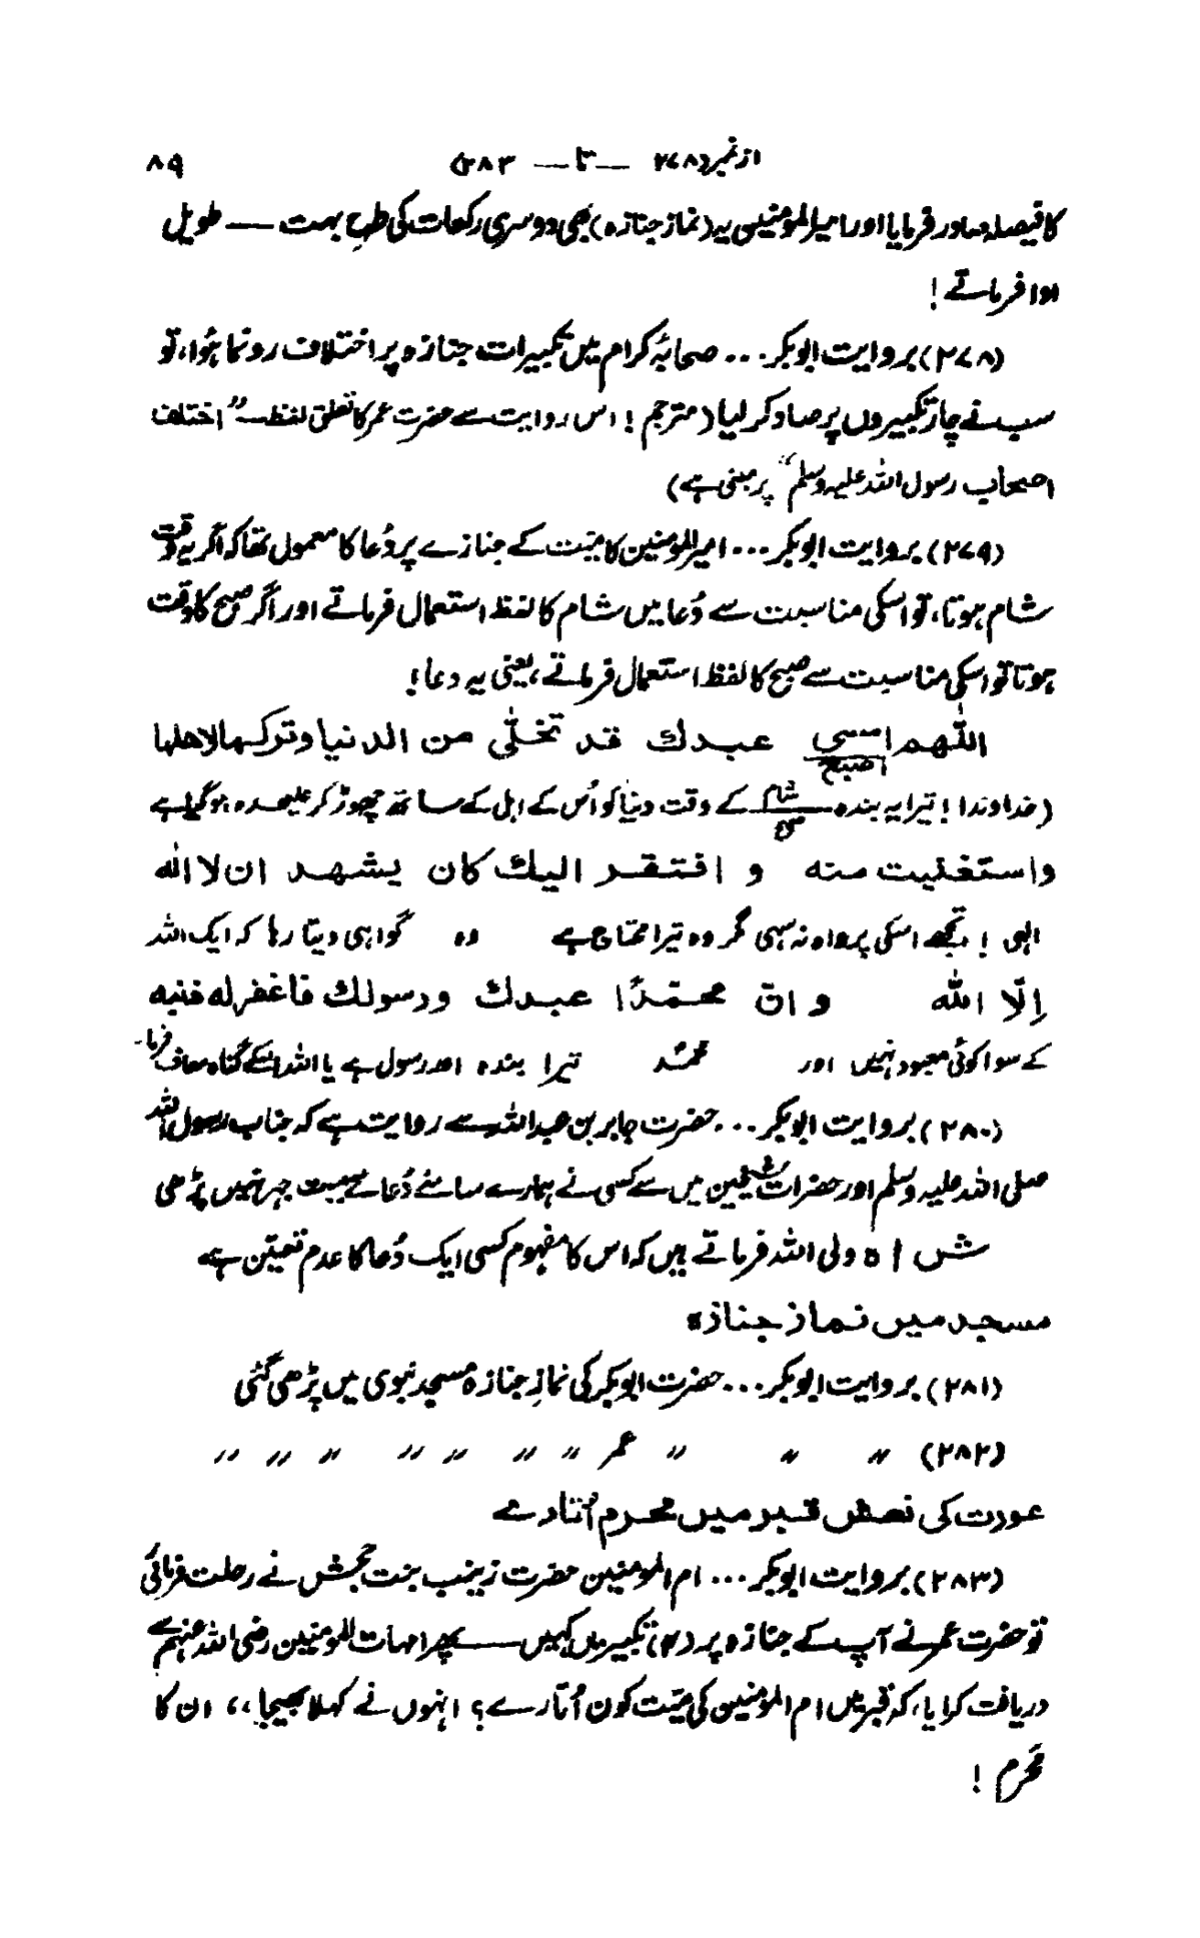 از نمبر (۲۷۸ — تا — ۲۸۳) ۸۹
کا فیصلہ صادر فرمایا اور امیر المؤمنین یہ (نماز جنازہ) بھی دوسری رکعات کی طرح بہت — طویل
ادا فرماتے !
(۲۷۸) بروایت ابوبکر ... صحابۂ کرام میں تکبیرات جنازہ پر اختلاف رونما ہُوا، تو
سب نے چار تکبیروں پر صاد کر لیا (مترجم ! اس روایت سے حضرت عمر کا تعلق لفظ ”اختلف
اصحاب رسول اللہ علیہ وسلم“ پر مبنی ہے)
(۲۷۹) بروایت ابوبکر ... امیر المومنین کا میّت کے جنازے پر دُعا کا معمول تھا کہ اگر یہ وقت
شام ہوتا، تو اسکی مناسبت سے دُعا میں شام کا لفظ استعمال فرماتے اور اگر صبح کا وقت
ہوتا تو اسکی مناسبت سے صبح کا لفظ استعمال فرماتے، یعنی یہ دعا!
اللّٰهم امسى اصبح عبدك قد تخلّى من الدنيا وتركها لاهلها
(خداوندا ! تیرا یہ بندہ شام صبح کے وقت دنیا کو اُس کے اہل کے ساتھ چھوڑ کر علیحدہ ہو گیا ہے
واستغنيت منه و افتقر اليك كان يشهد ان لا الله
الٰہی ! تجھے اسکی پرواہ نہ سہی مگر وہ تیرا محتاج ہے وہ گواہی دیتا رہا کہ ایک اللہ
اِلّا الله و انّ محمّدًا عبدك ورسولك فاغفر له ذنبه
کے سوا کوئی معبود نہیں اور محمدؐ تیرا بندہ اور رسول ہے یا اللہ اسکے گناہ معاف فرما۔
(۲۸۰) بروایت ابوبکر ... حضرت جابر بن عبداللہ سے روایت ہے کہ جناب رسول اللہ
صلی اللہ علیہ وسلم اور حضرات شیخین میں سے کسی نے ہمارے سامنے دُعائے میت جہر نہیں پڑھی
ش ا ہ ولی اللہ فرماتے ہیں کہ اس کا مفہوم کسی ایک دُعا کا عدم تعیّن ہے
مسجد میں نماز جنازہ
(۲۸۱) بروایت ابوبکر ... حضرت ابوبکر کی نمازِ جنازہ مسجد نبوی میں پڑھی گئی
(۲۸۲) 〃 〃 〃 عمر 〃 〃 〃 〃 〃 〃 〃
عورت کی نعش قبر میں محرم اُتارے
(۲۸۳) بروایت ابوبکر ... ام المومنین حضرت زینب بنت جحش نے رحلت فرمائی
تو حضرت عمر نے آپ کے جنازہ پر (۴) تکبیریں کہیں — پھر امہات المومنین رضی اللہ عنہم سے
دریافت کرایا، کہ قبر میں ام المومنین کی میّت کون اُتارے؟ انہوں نے کہلا بھیجا،، ان کا
مَحرم !